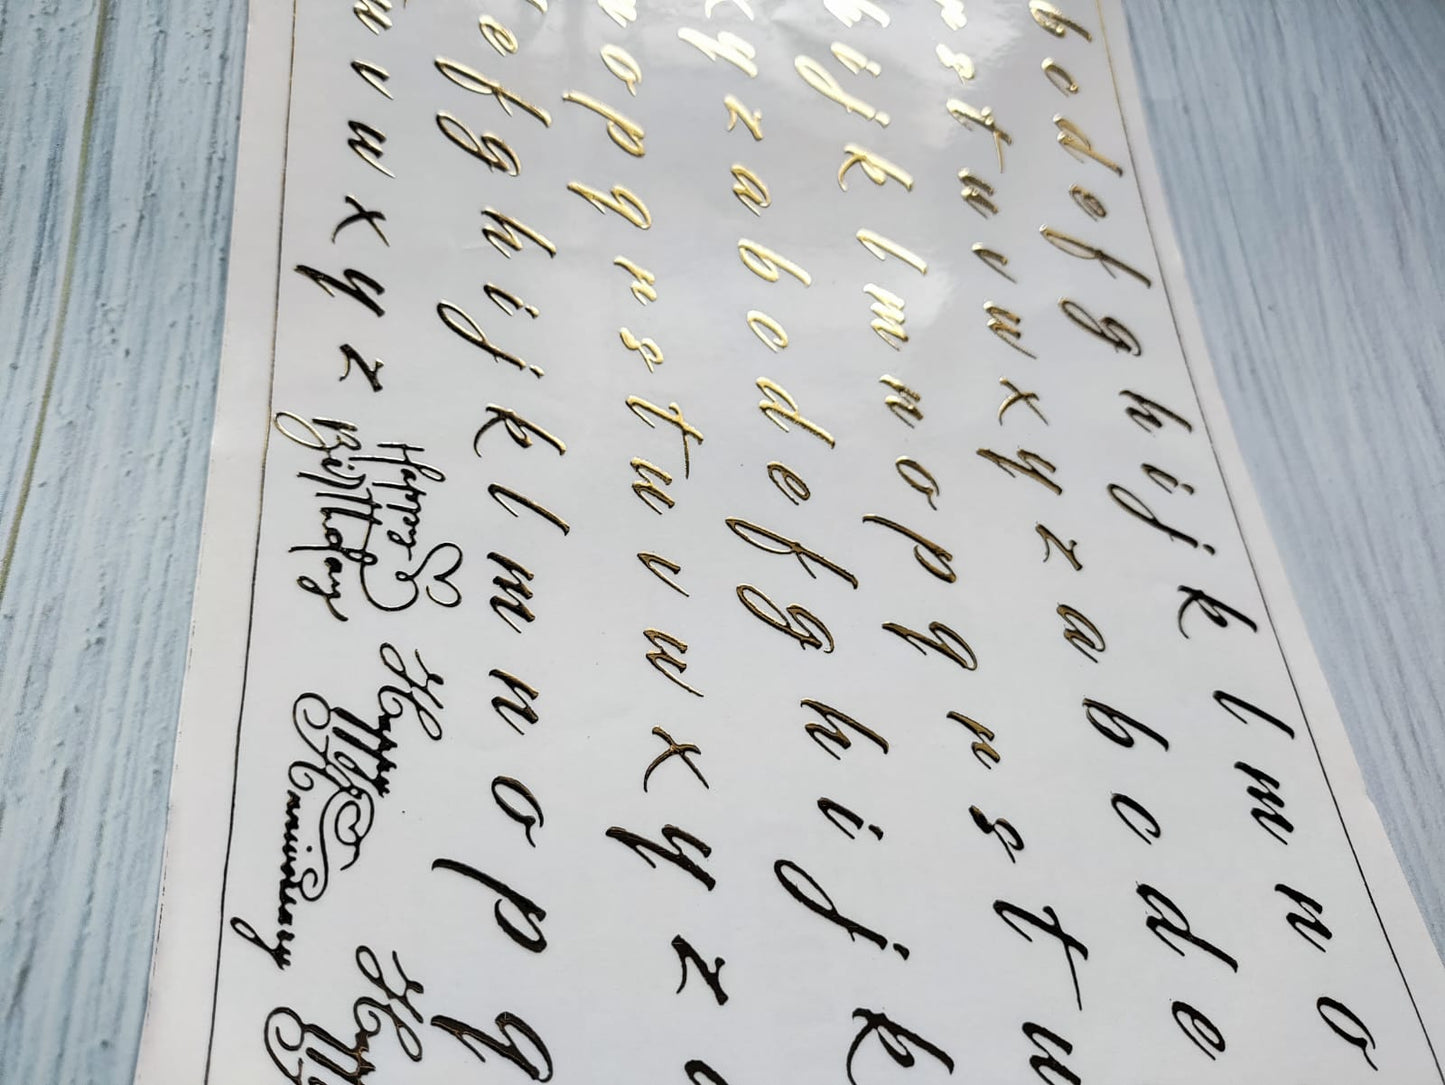 b c d e f g h i j k l m n o
r s t u v w x y z a b c d e
h i j k l m n o p q r s t u
x y z a b c d e f g h i j k
n o p q r s t u v w x y z
e f g h i j k l m n o p q
u v w x y z
Happy
Birthday
Happy
Anniversary